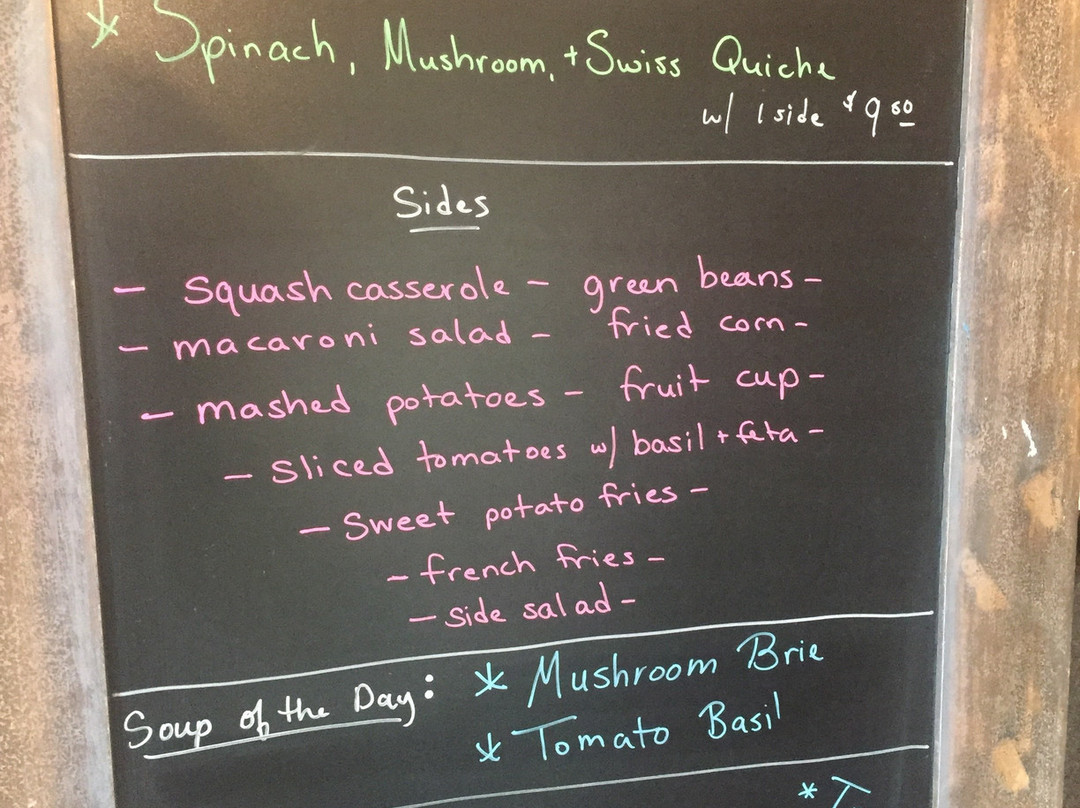 * Spinach, Mushroom, + Swiss Quiche
w/ 1 side $9.00
Sides
- squash casserole - green beans -
- macaroni salad - fried corn -
- mashed potatoes - fruit cup -
- sliced tomatoes w/ basil + feta -
- Sweet potato fries -
- french fries -
- side salad -
Soup of the Day: * Mushroom Brie
* Tomato Basil